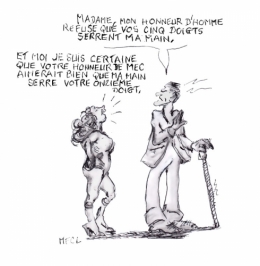 MADAME, MON HONNEUR D'HOMME
REFUSE QUE VOS CINQ DOIGTS
SERRENT MA MAIN.
ET MOI JE SUIS CERTAINE
QUE VOTRE HONNEUR DE MEC
AIMERAIT BIEN QUE MA MAIN
SERRE VOTRE ONZIEME
DOIGT.